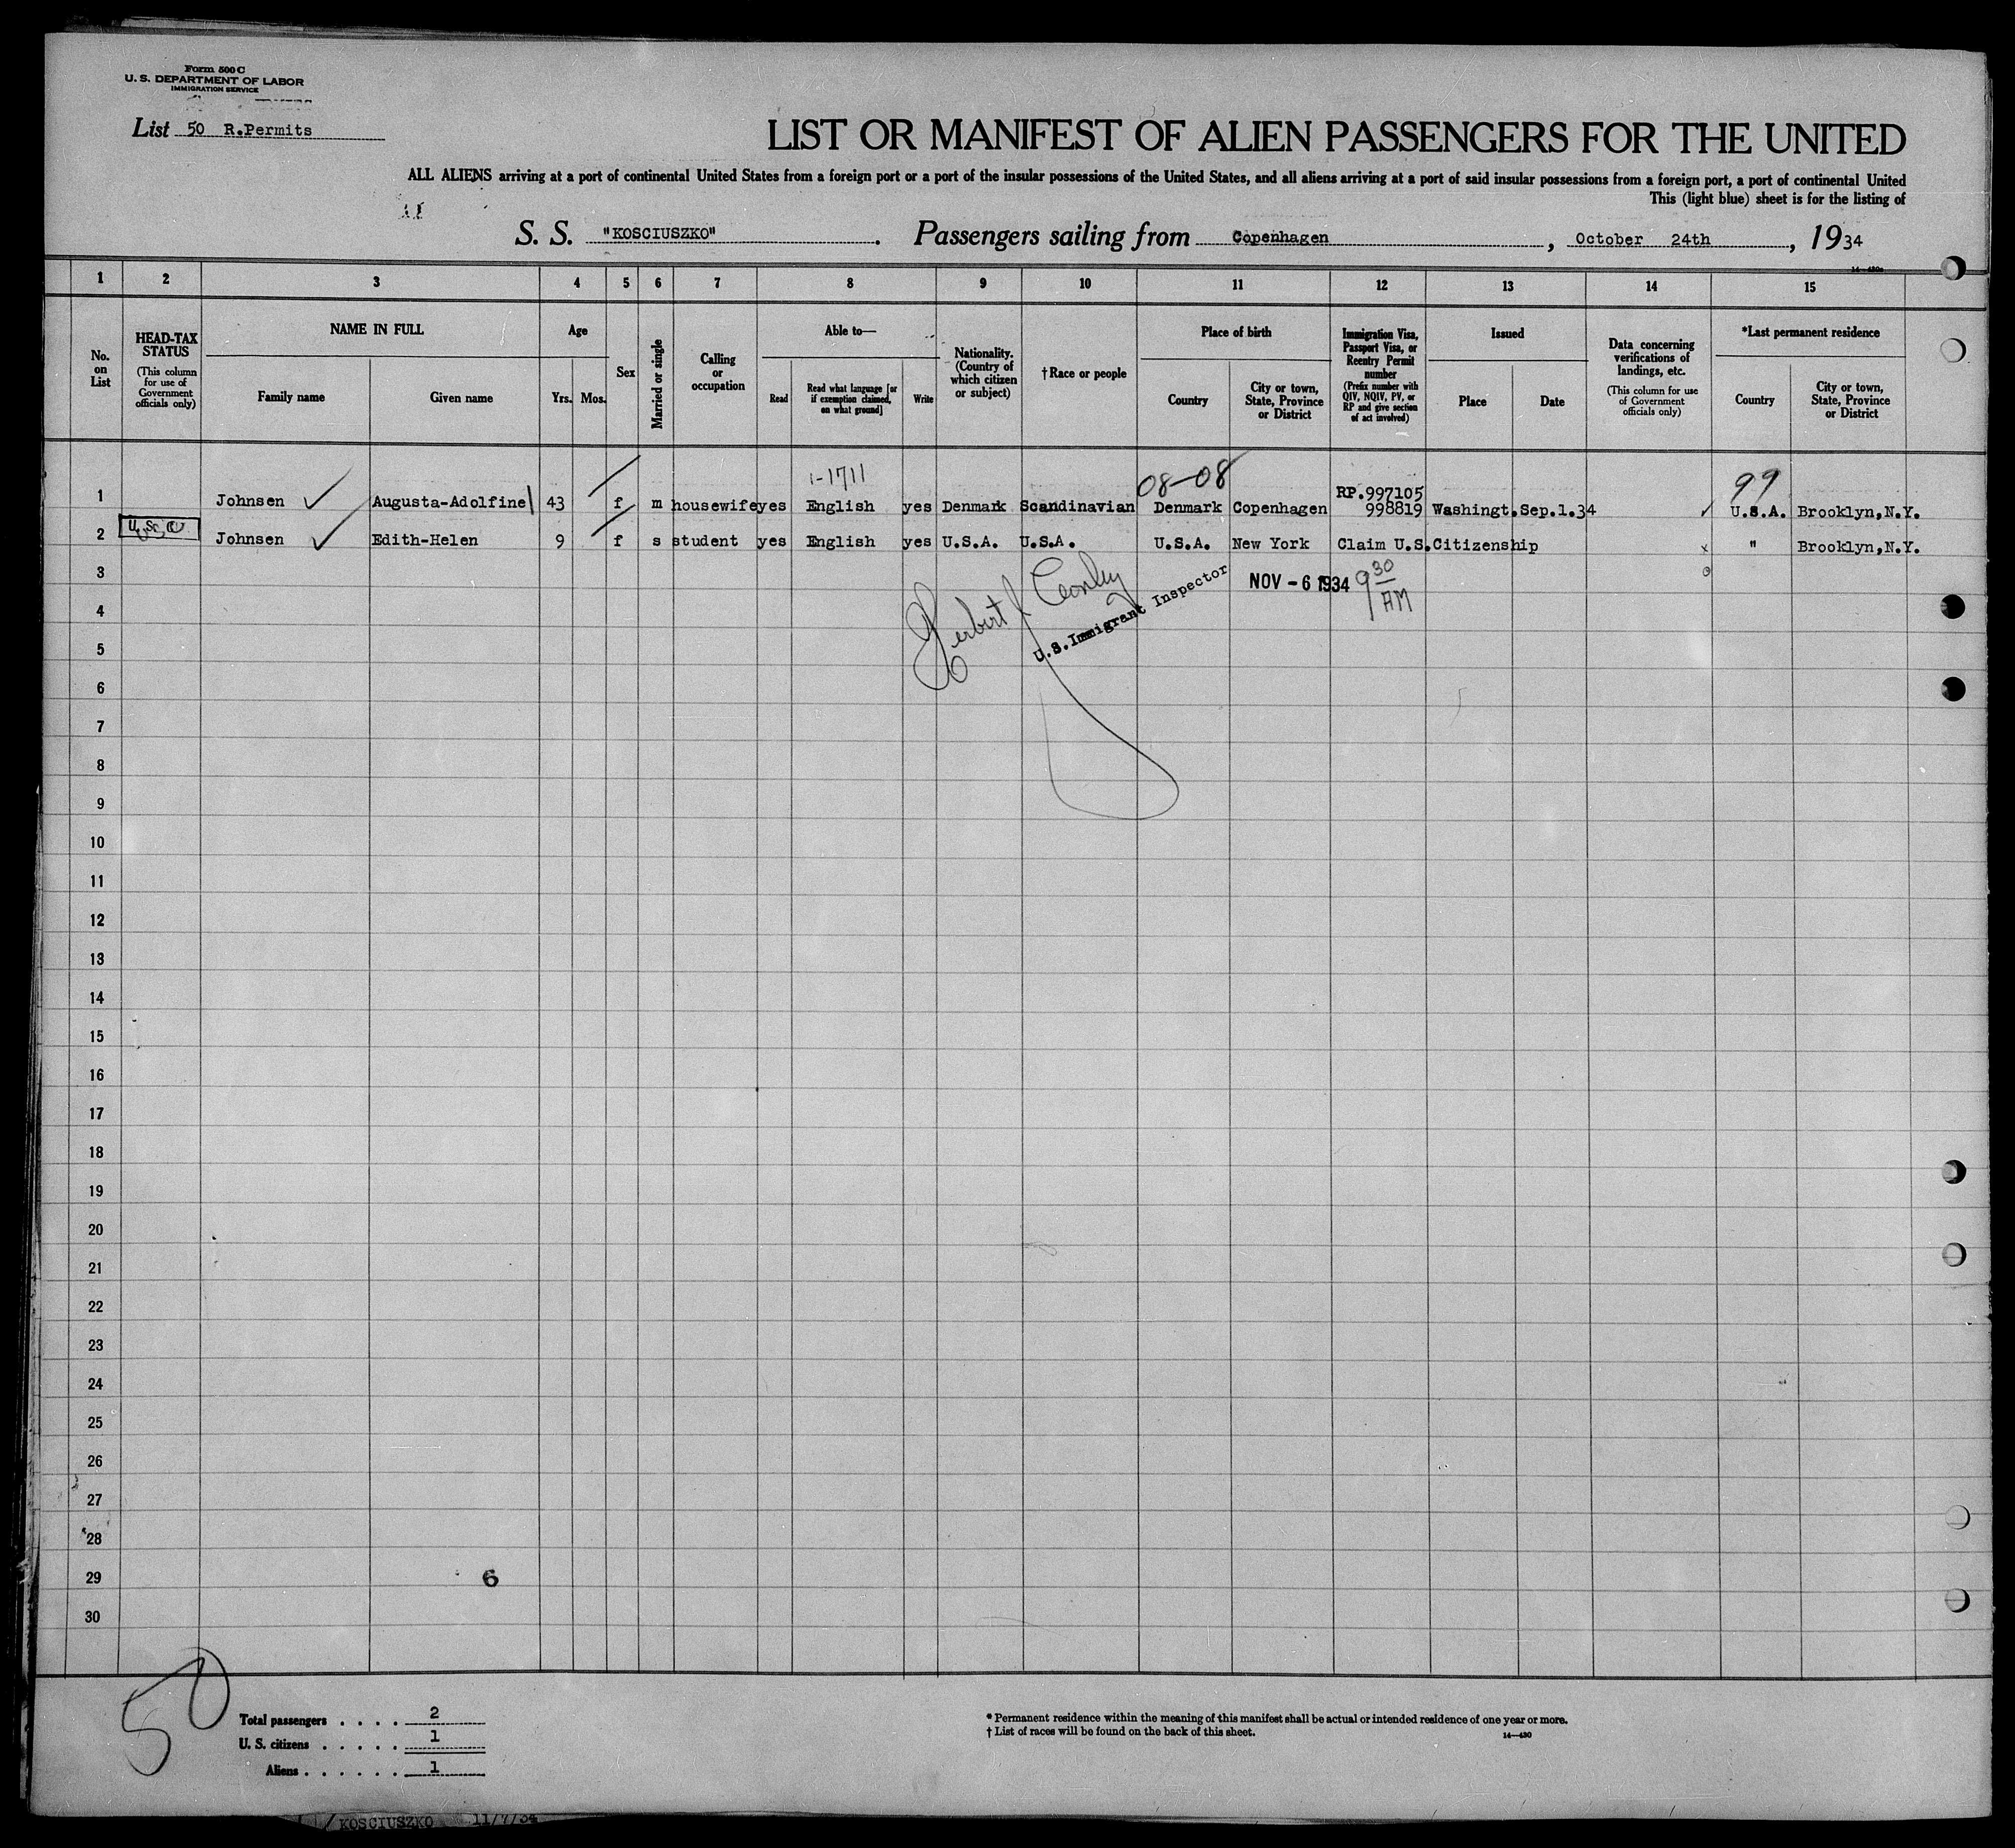 Form 500 C
U. S. DEPARTMENT OF LABOR
IMMIGRATION SERVICE
List 50 R.Permits
LIST OR MANIFEST OF ALIEN PASSENGERS FOR THE UNITED
ALL ALIENS arriving at a port of continental United States from a foreign port or a port of the insular possessions of the United States, and all aliens arriving at a port of said insular possessions from a foreign port, a port of continental United
This (light blue) sheet is for the listing of
S. S. "KOSCIUSZKO". Passengers sailing from Copenhagen, October 24th, 1934
1 2 3 4 5 6 7 8 9 10 11 12 13 14 15
No. on List
HEAD-TAX STATUS
(This column for use of Government officials only)
NAME IN FULL
Family name
Given name
Age
Yrs. Mos.
Sex
Married or single
Calling or occupation
Able to—
Read
Read what language [or if exemption claimed, on what ground]
Write
Nationality. (Country of which citizen or subject)
†Race or people
Place of birth
Country
City or town, State, Province or District
Immigration Visa, Passport Visa, or Reentry Permit number
(Prefix number with QIV, NQIV, PV, or RP and give section of act involved)
Issued
Place
Date
Data concerning verifications of landings, etc.
(This column for use of Government officials only)
*Last permanent residence
Country
City or town, State, Province or District
1-1711 08-08 99
1 Johnsen Augusta-Adolfine 43 f m housewife yes English yes Denmark Scandinavian Denmark Copenhagen RP.997105 998819 Washingt. Sep.1.34 U.S.A. Brooklyn,N.Y.
2 Johnsen Edith-Helen 9 f s student yes English yes U.S.A. U.S.A. U.S.A. New York Claim U.S.Citizenship " Brooklyn,N.Y.
Herbert J
U.S.Immigrant Inspector
NOV - 6 1934 9 30 AM
3
4
5
6
7
8
9
10
11
12
13
14
15
16
17
18
19
20
21
22
23
24
25
26
27
28
29 6
30
50
Total passengers . . . . 2
U. S. citizens . . . . . 1
Aliens . . . . . . 1
* Permanent residence within the meaning of this manifest shall be actual or intended residence of one year or more.
† List of races will be found on the back of this sheet.
14—430
KOSCIUSZKO 11/7/34